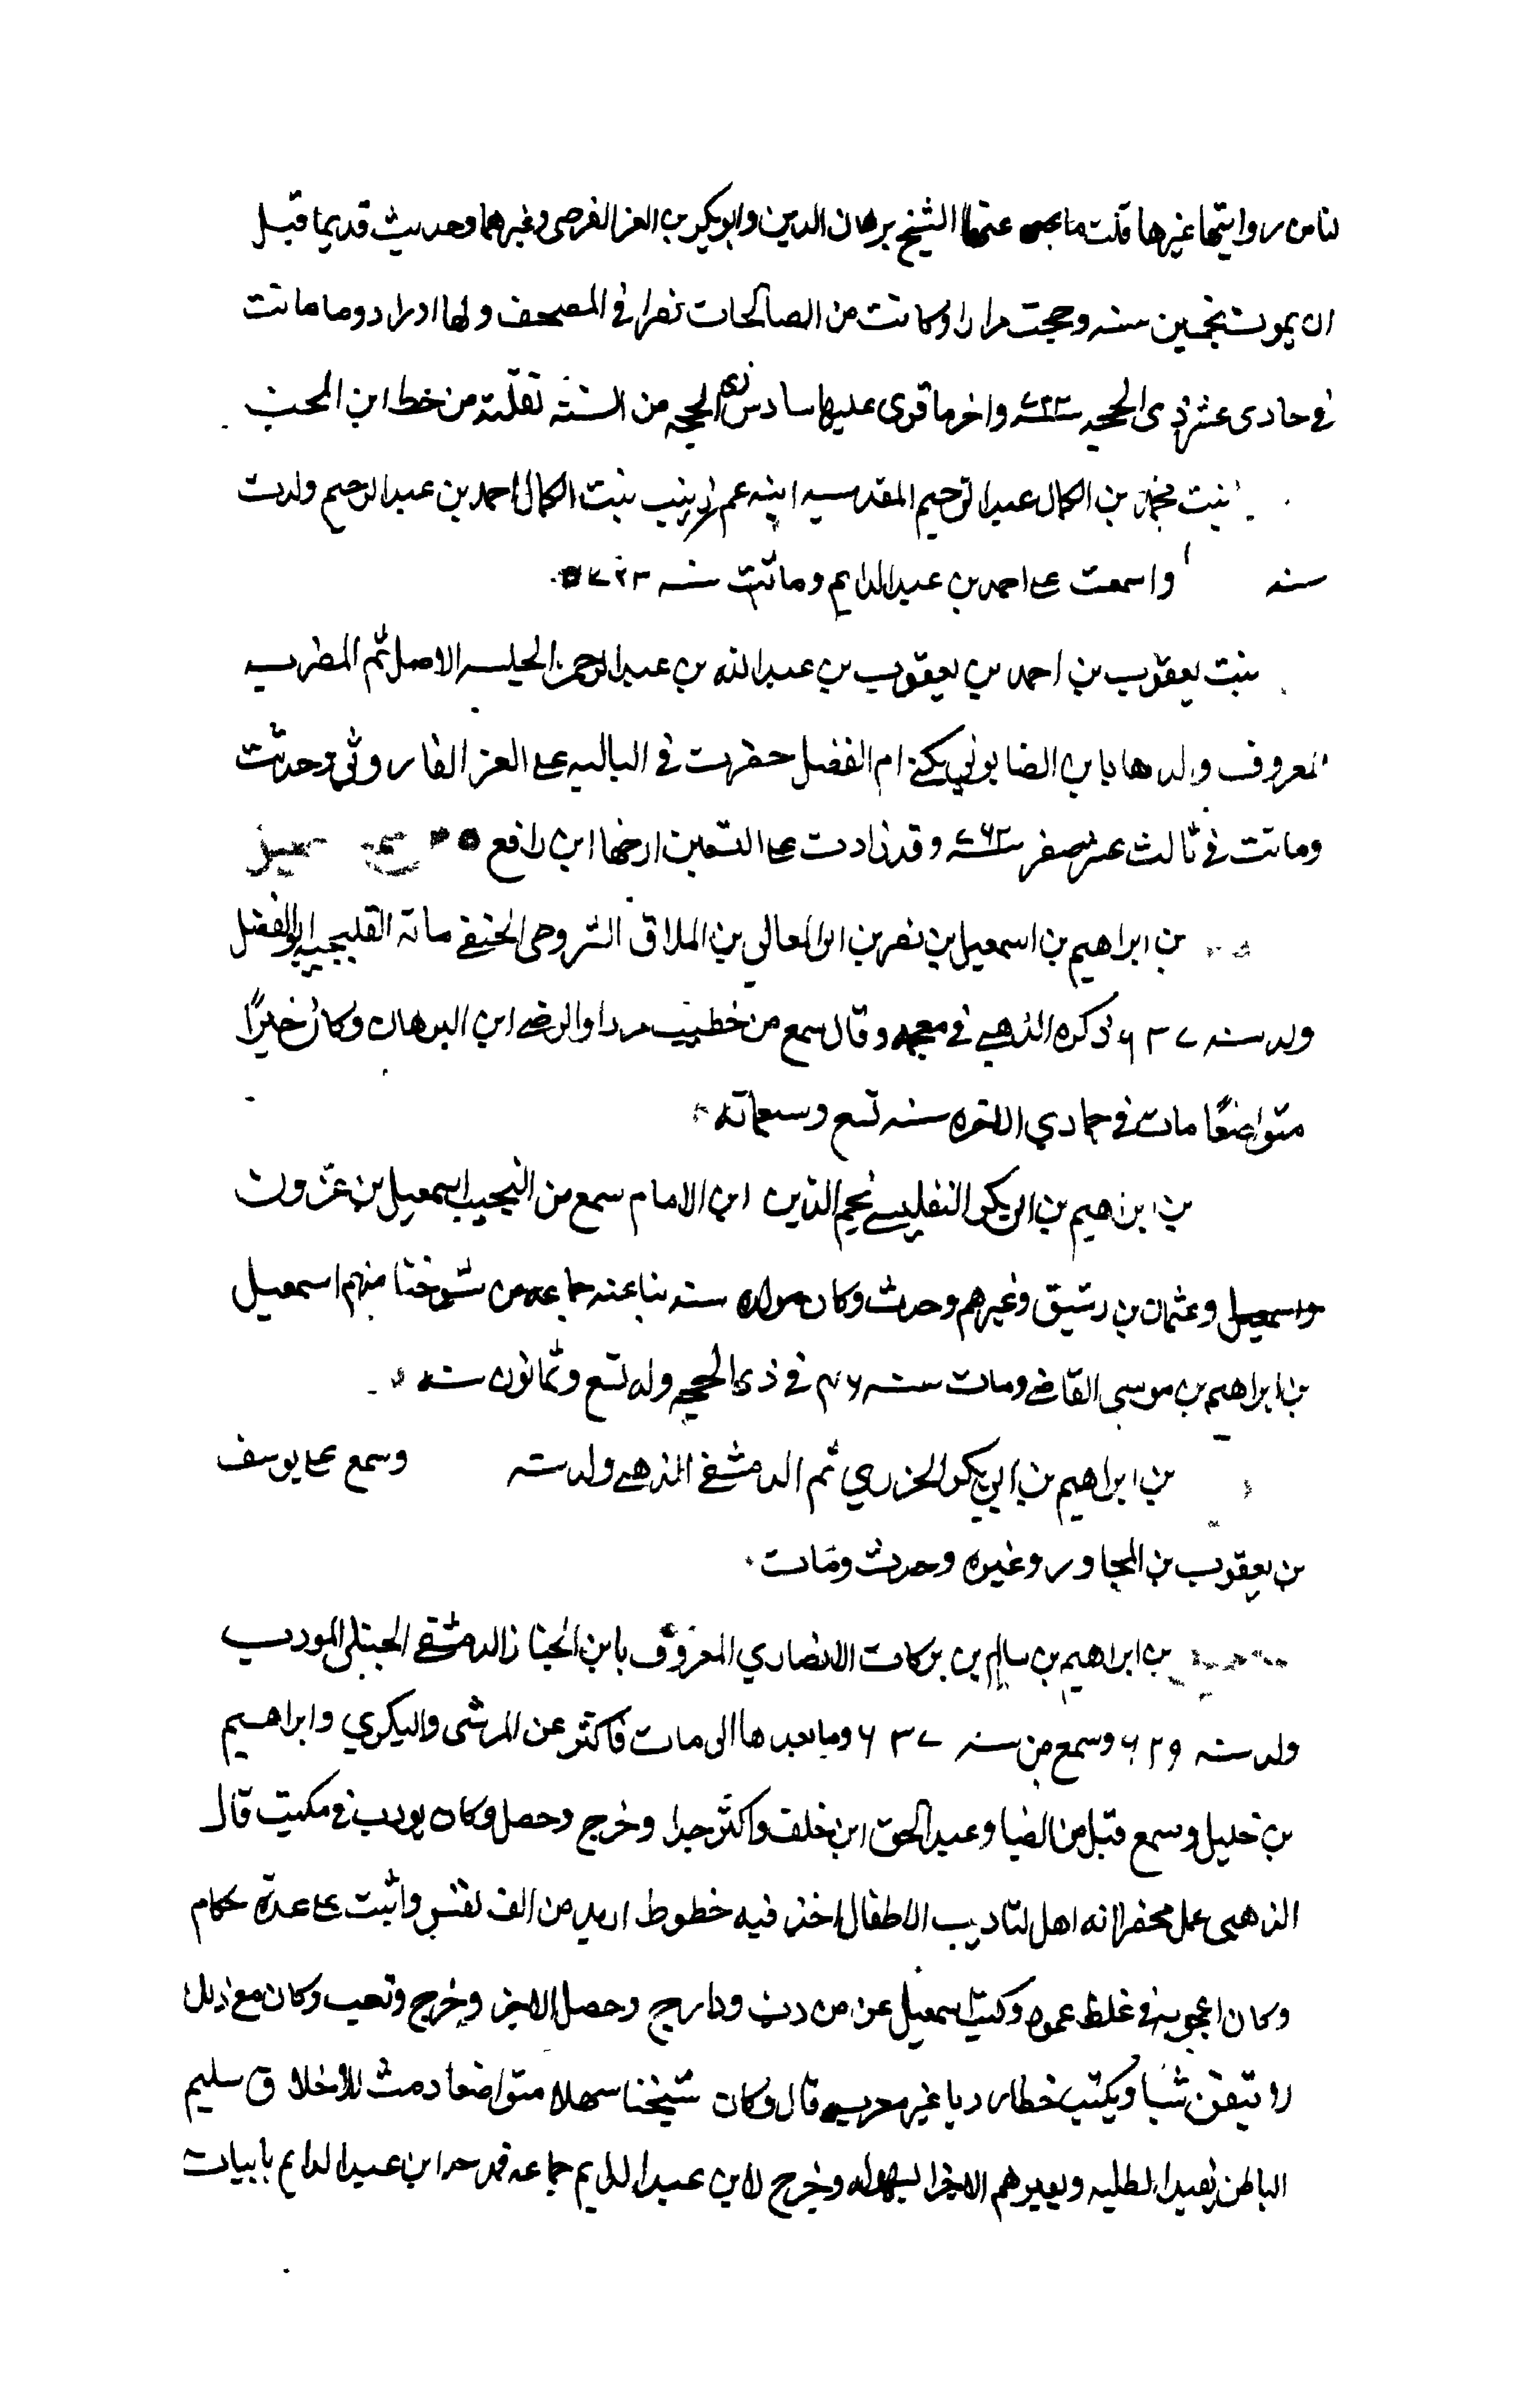 لنا من روايتها غيرها قلت ما عنها الشيخ برهان الدين وابو بكر بن العز الفرضى وغيرهما وحديث قديما قبل
ان يموت بخمسين سنه وحجت مرارا وكانت من الصالحات تقرا في المصحف ولها اوراد دوما ماتت
في حادى عشر ذى الحجه واخر ما قرى عليها سادس ذى الحجه من السنه نقلته من خط ابن المحب
بنت محمد بن الكمال عبد الرحيم المقدسيه ابنه عم زينب بنت الكمال احمد بن عبد الرحيم ولدت
سنه واسمعت على احمد بن عبد الدايم وماتت سنه ٧٢٣
بنت يعقوب بن احمد بن يعقوب بن عبد الله بن عبد الرحمن الحلبيه الاصل ثم المطريه
المعروف والدها بابن الصابوني تكنى ام الفضل حضرت في الثالثه على العز الفاروثي وحدثت
وماتت في ثالث عشر صفر وقد زادت على التسعين ارخها ابن رافع
بن ابراهيم بن اسمعيل بن نصر بن ابى المعالي بن الملاق السروجى الحنفي ابو الفضل
ولد سنه ٦٣٧ ذكره الذهبي في معجمه وقال سمع من خطيب مردا والرضي ابن البرهان وكان خيرًا
متواضعًا مات في جمادي الاخره سنه تسع وسبعمائه
بن ابراهيم بن ابى بكر التفليسي نجم الدين ابن الامام سمع من النجيب اسمعيل بن عزون
واسمعيل وعثمان بن رشيق وغيرهم وحدث وكان مولده سنه ثنا عنه جماعه من شيوخنا منهم اسمعيل
بن ابراهيم بن موسى القاضي ومات سنه ٧٤٦ في ذى الحجه وله تسع وثمانون سنه
بن ابراهيم بن ابي بكر الجزري ثم الدمشقي الذهبي ولد سنه وسمع على يوسف
بن يعقوب بن المجاور وغيره وحدث ومات
بن ابراهيم بن سالم بن بركات الانصاري المعروف بابن الخباز الدمشقي الحنبلى المودب
ولد سنه ٦٢٩ وسمع من سنه ٦٣٧ وما بعدها الى مات فاكثر عن المرسى والبكري وابراهيم
بن خليل وسمع قبل من الضيا وعبد الحق ابن خلف واكثر جدا وخرج وحصل وكان يودب في مكتب قال
الذهبى عمل محضرا انه اهل لتاديب الاطفال اخذ فيه خطوط ازيد من الف نفس واثبت على عدة حكام
وكان اعجوبه في غلظ عمره وكتب اسمعيل عن من دب ودرج وحصل الاجزا وخرج وتعب وكان مع ذلك
لا يتقن شيا ويكتب خطا رديا غير معرب قال وكان شيخنا سهلا متواضعا دمث الاخلاق سليم
الباطن يفيد الطلبه ويعيرهم الاجزا بسهوله وخرج لابن عبد الدايم جماعه ابن عبد الدايم بابيات